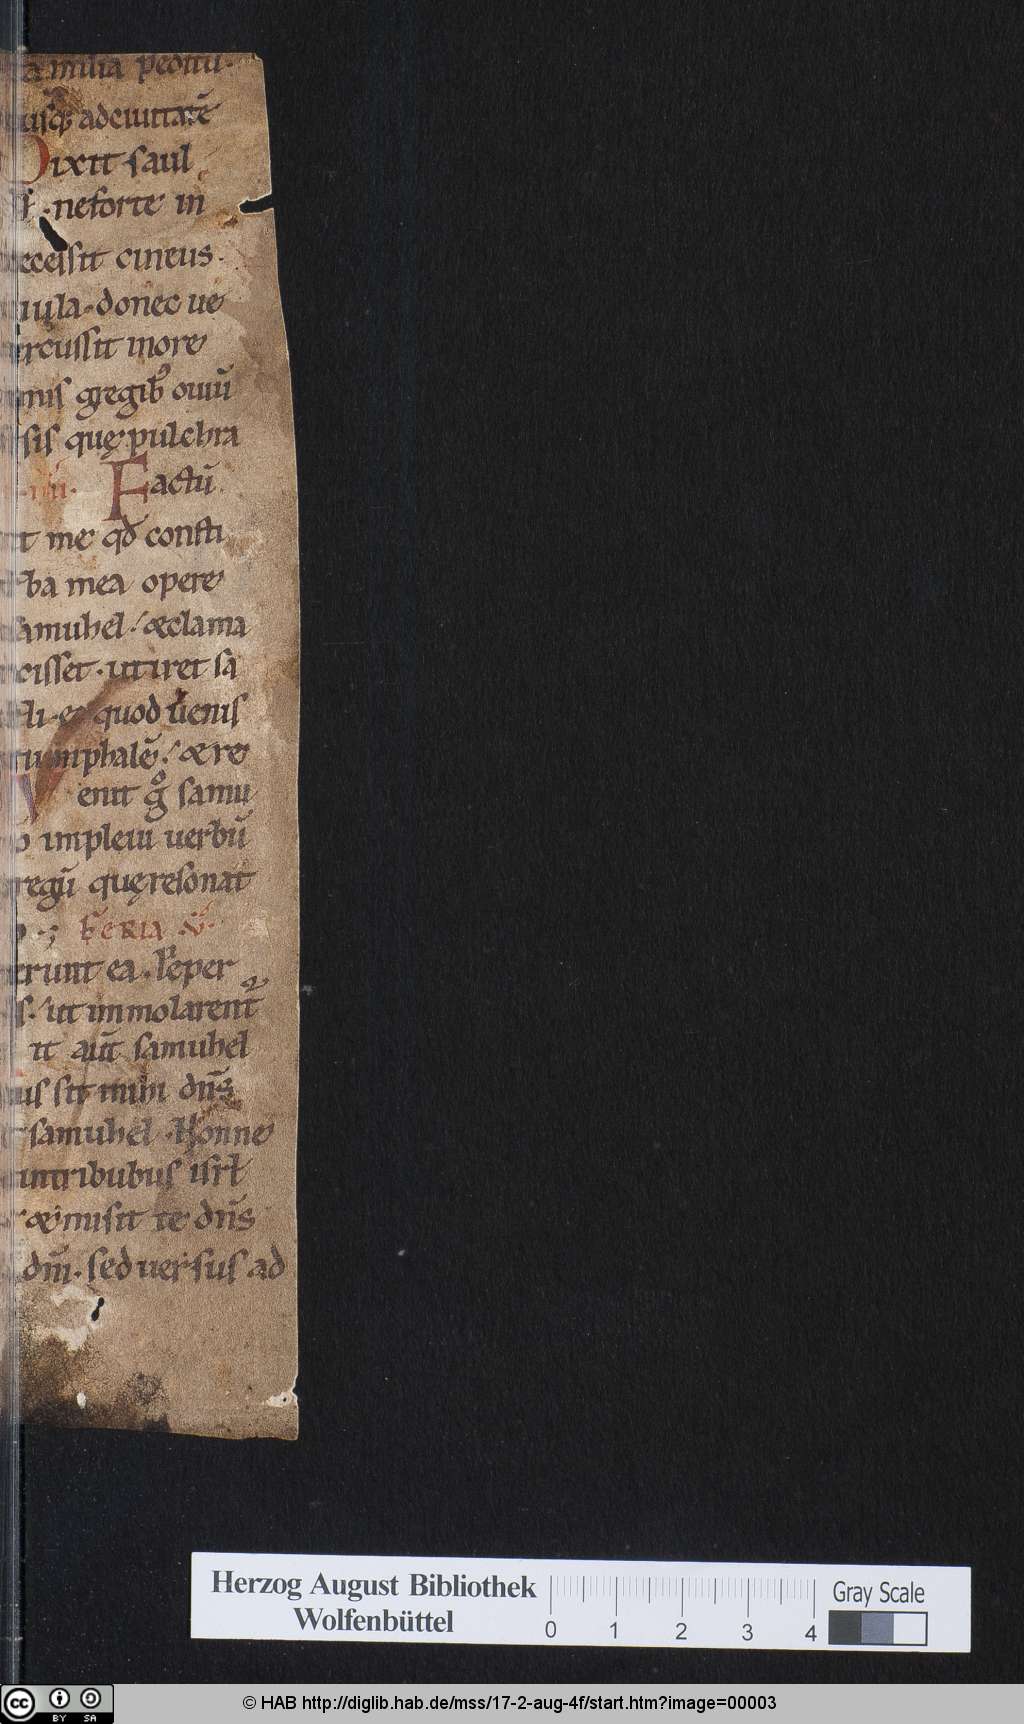 milia peditū.
usq; adciuitatē
Dixit saul
neforte in
recessit cineus.
uila. donec ue
percussit more
imis gregib; ouiū
sis quę pulchra
.iiii. Factū
it me qd consti
rba mea opere
samuhel. / &clama
cisset. ut iret sa
li. eo quod uenis
triumphalē. / & re
enit g° samu
impleui uerbū
gregū quę resonat
Feria .v.
erunt ea. Peper
s. / ut immolarent᷑
it aut̄ samuhel
us sit mihi dn̄s
samuhel. Nonne
intribubus isrl̄
& misit te dn̄s
dn̄i. sed uersus ad
Herzog August Bibliothek
Wolfenbüttel
0 1 2 3 4
Gray Scale
cc BY SA
© HAB http://diglib.hab.de/mss/17-2-aug-4f/start.htm?image=00003